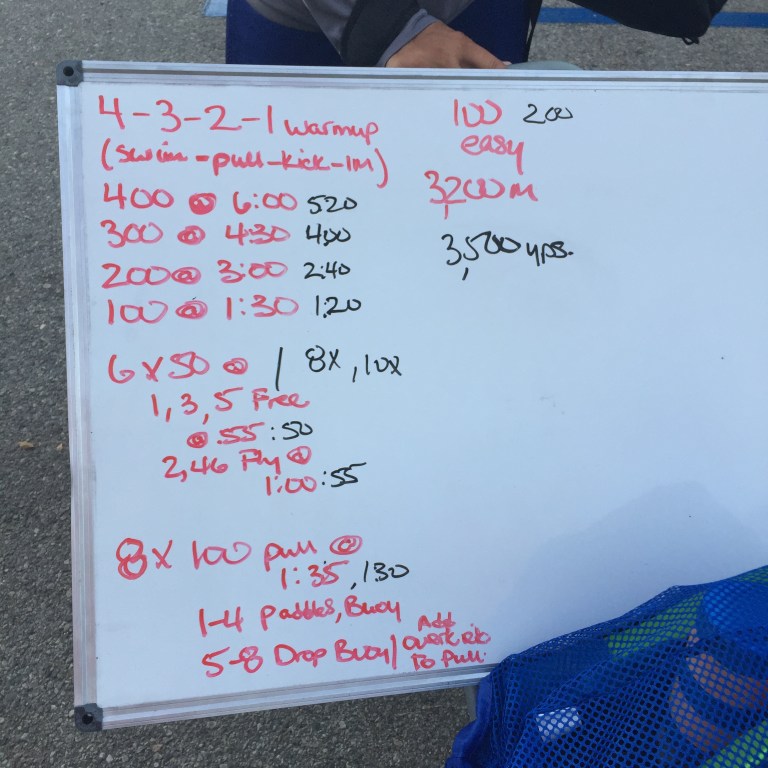 4-3-2-1 warmup
(swim-pull-kick-IM)
400 @ 6:00 520
300 @ 4:30 400
200 @ 3:00 2:40
100 @ 1:30 1:20
6 x 50 @ / 8x, 10x
1, 3, 5 Free
@ :55 :50
2,46 Fly @
1:00 :55
8 x 100 pull @
1:35, 130
1-4 paddles, Buoy
5-8 Drop Buoy/ Add
to Pull.
100 200
easy
3,200m
3,500 yds.